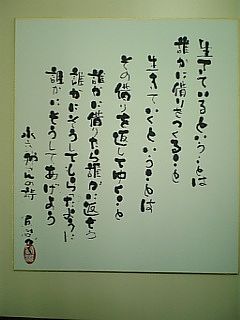 生きているということは
誰かに借りをつくること
生きていくということは
その借りを返してゆくこと
誰かに借りたら誰かに返そう
誰かにそうしてもらったように
誰かにそうしてあげよう
永六輔さんの詩